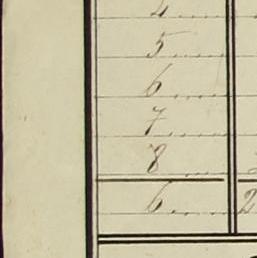 4 ....
5 ....
6 ....
7 ....
8 ....
6 .... 2